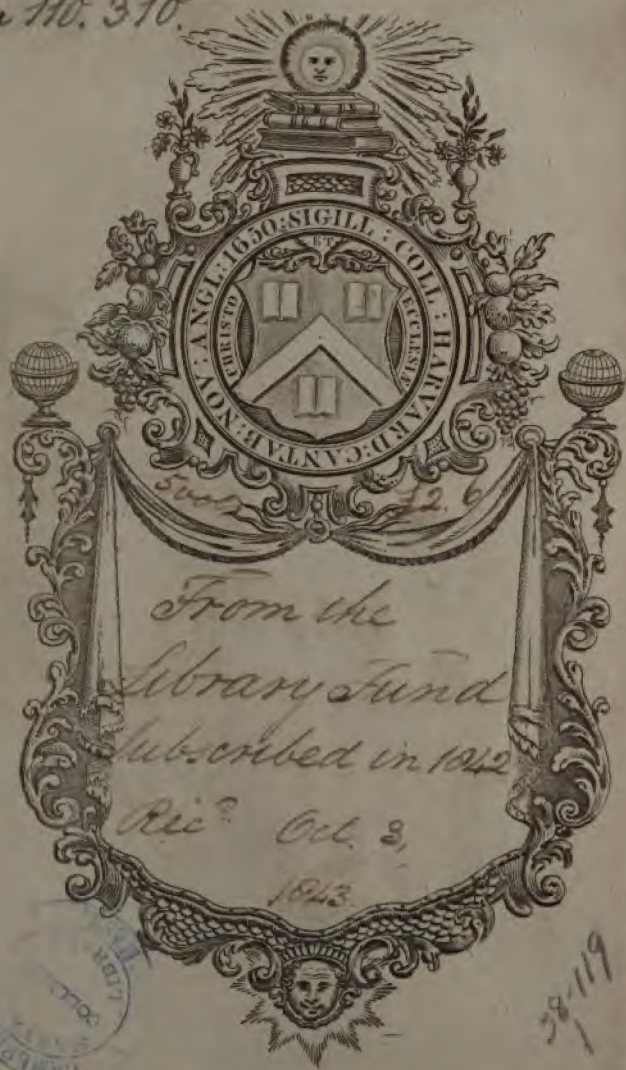 110. 310.
SIGILL : COLL : HARVARD : CANTAB : NOV : ANGL : 1650 :
CHRISTO ET ECCLESIÆ
From the
Library Fund
subscribed in 1842
Rec? Oct. 3,
1843.
38-119
1